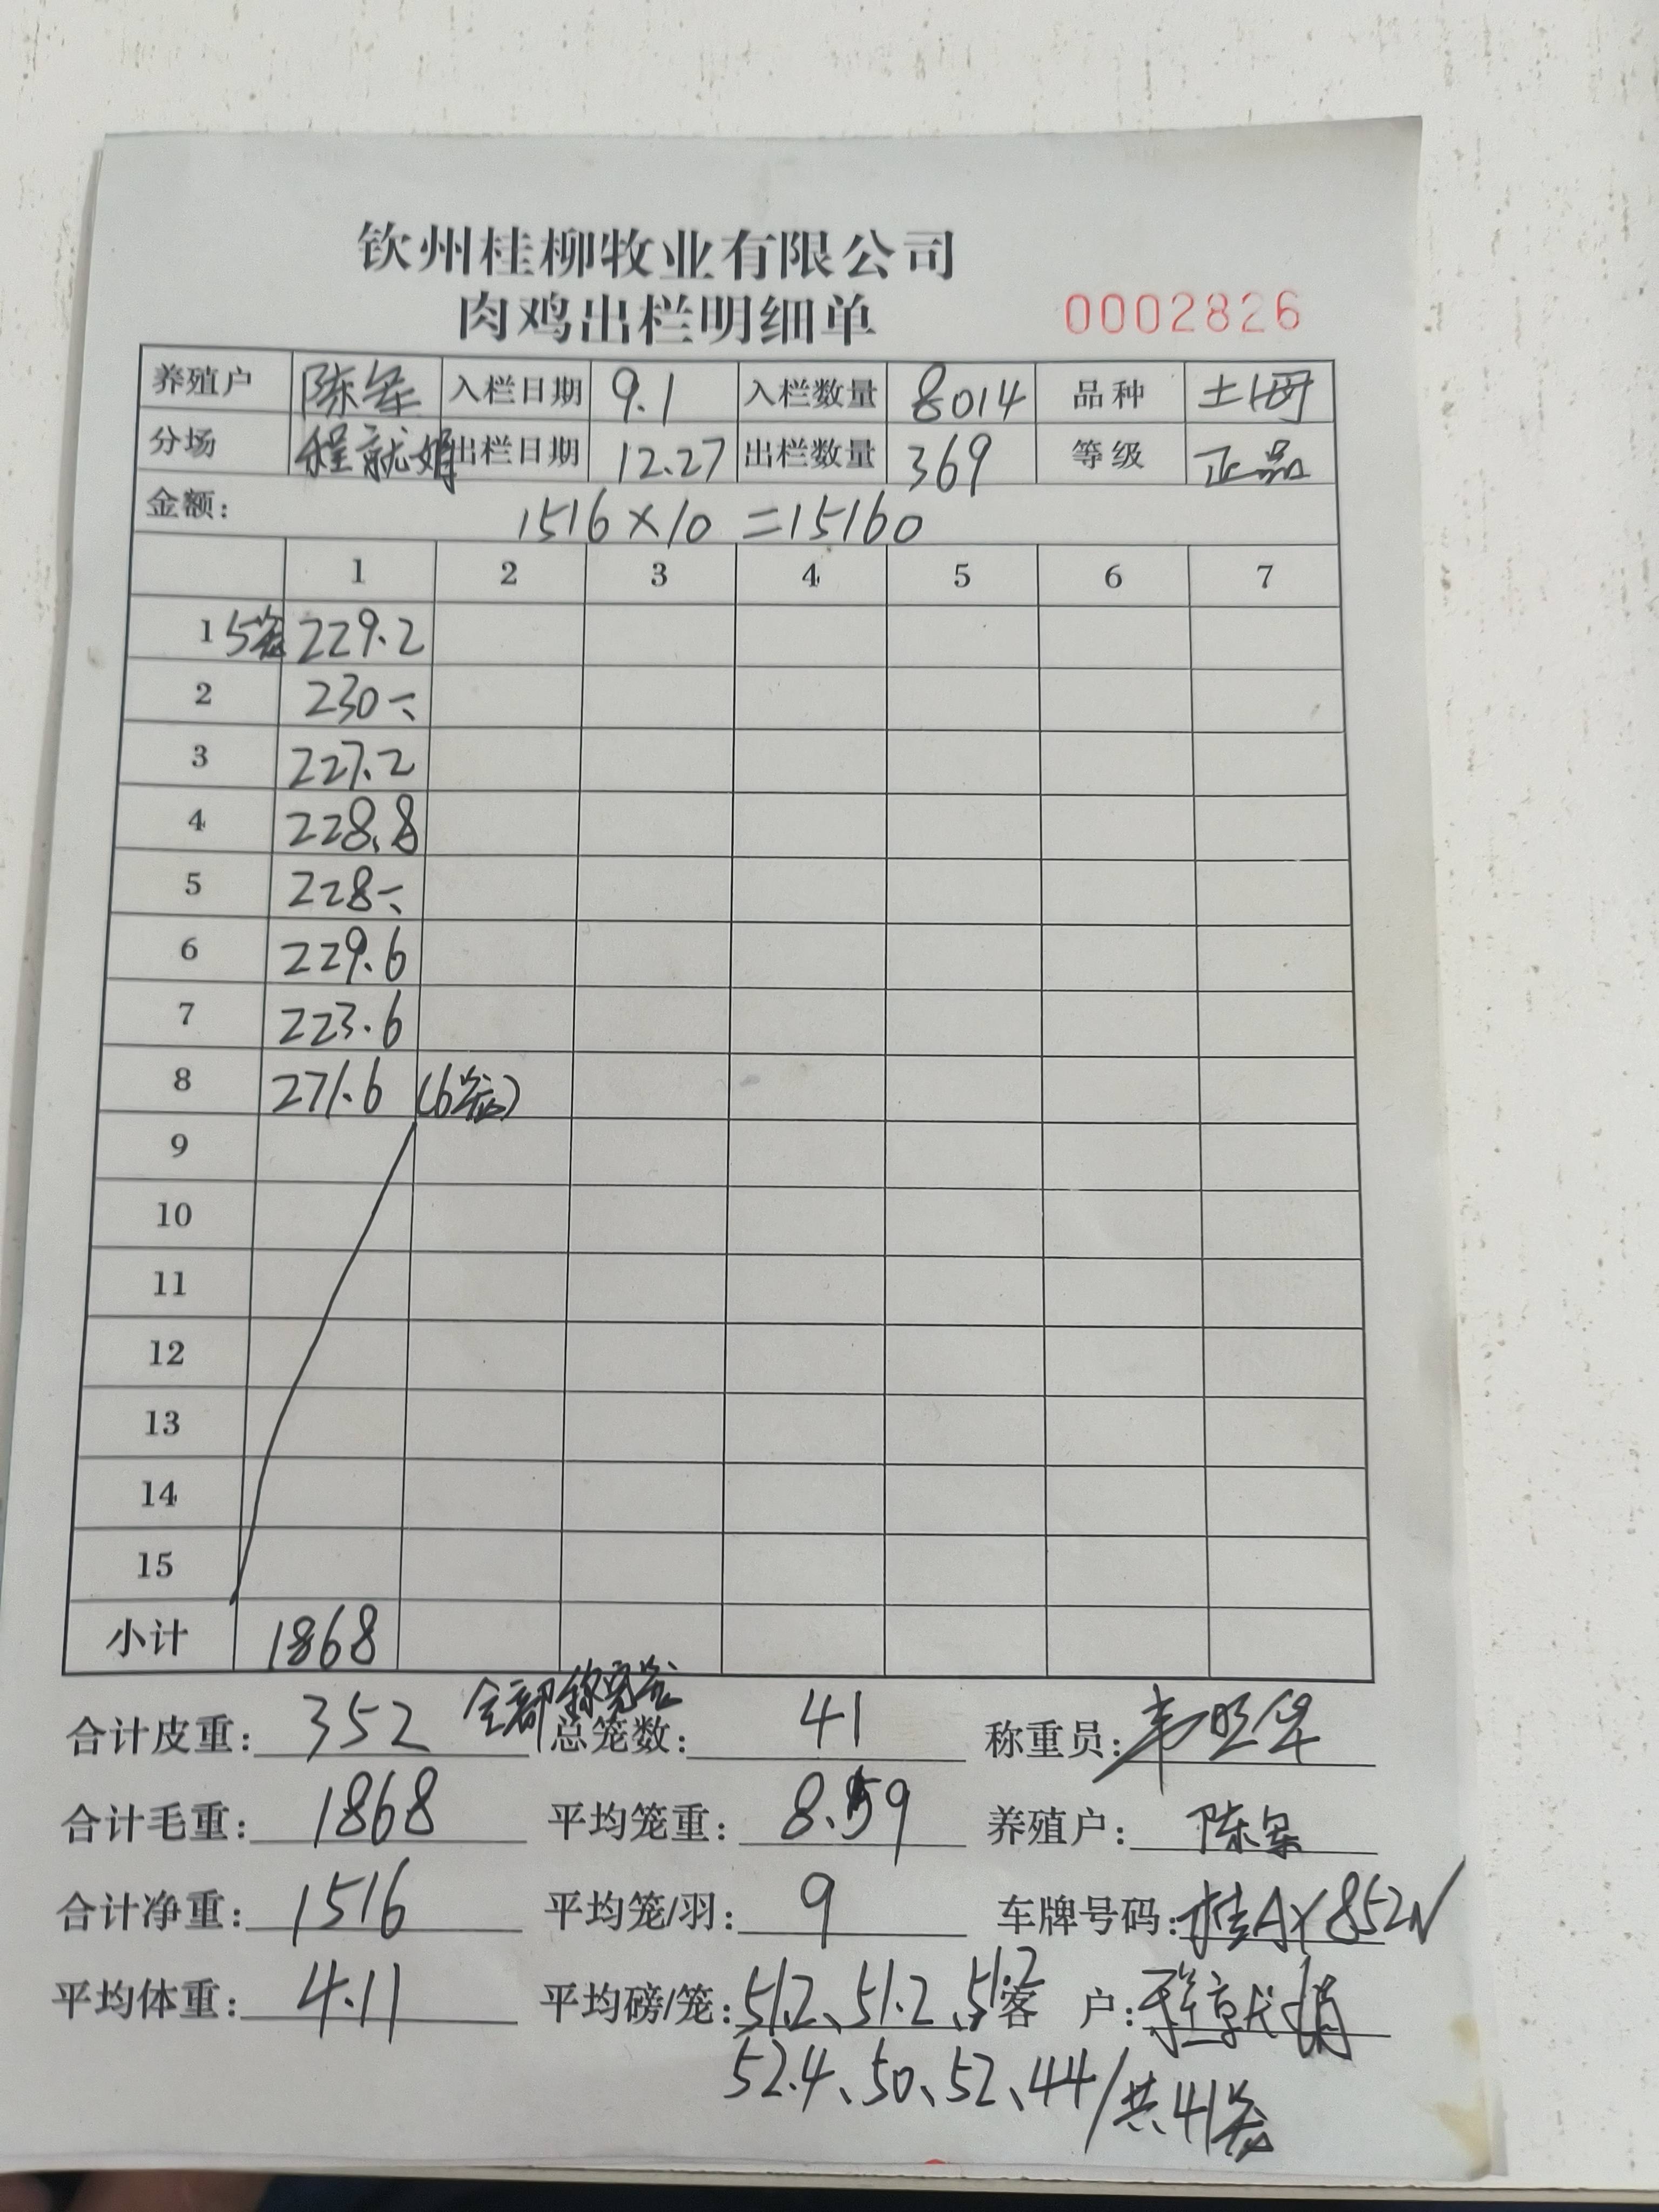 钦州桂柳牧业有限公司
肉鸡出栏明细单 0002826
养殖户 陈军 入栏日期 9.1 入栏数量 8014 品种 土
分场 程就娟 出栏日期 12.27 出栏数量 369 等级 正品
金额: 1516×10=15160
1 2 3 4 5 6 7
1 5笼 229.2
2 230
3 227.2
4 228.8
5 228
6 229.6
7 223.6
8 271.6 (6笼)
9
10
11
12
13
14
15
小计 1868
全部称完笼
合计皮重: 352 总笼数: 41 称重员:
合计毛重: 1868 平均笼重: 8.59 养殖户: 陈军
合计净重: 1516 平均笼/羽: 9 车牌号码: 桂AY852N
平均体重: 4.11 平均磅/笼: 51.2、51.2、51.2 客户: 程就娟
52.4、50、52、44/共41笼